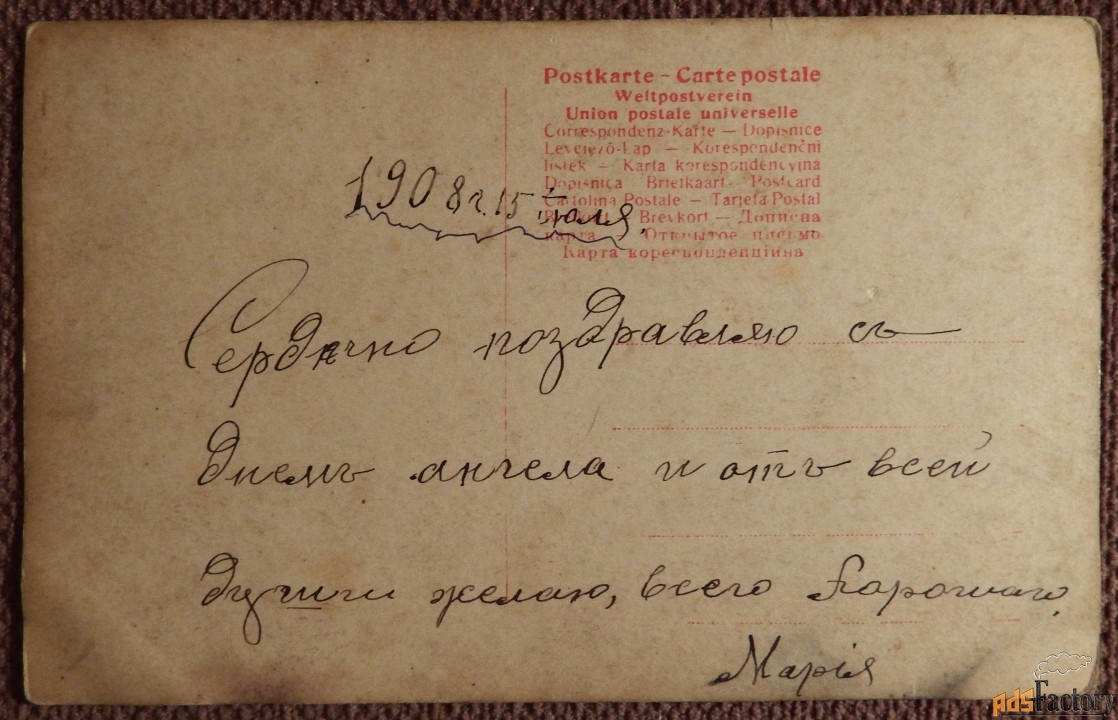 Postkarte – Carte postale
Weltpostverein
Union postale universelle
Correspondenz-Karte — Dopisnice
Levelező-Lap — Korespondenční
lístek — Karta korespondencyjna
Dopisnica Briefkaart Postcard
Cartolina Postale — Tarjeta Postal
Brevkort — Дописна
карта Открытое письмо
Карта кореспонденційна
1908 г. 15 июля.
Сердечно поздравляю съ
Днемъ ангела и отъ всей
души желаю, всего Хорошаго.
Марія
AdsFactory